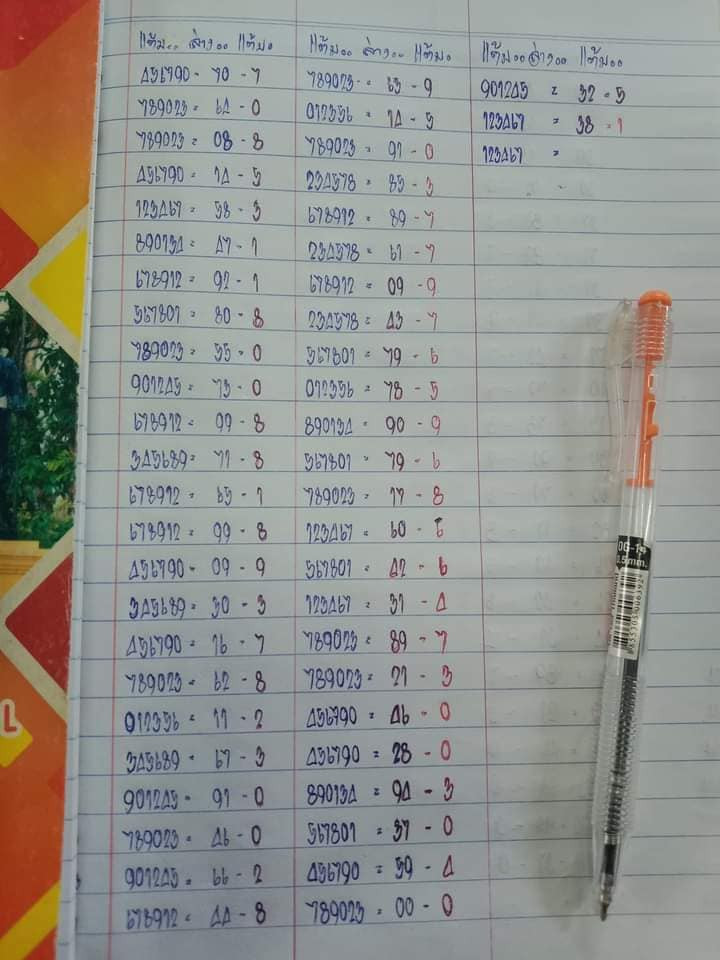 แต้ม.. ล่าง.. แต้ม.
456790 - 70 - 7
789023 = 64 - 0
789023 = 08 - 8
456790 = 14 - 5
123467 = 58 - 3
890134 = 47 - 1
678912 = 92 - 1
567801 = 80 - 8
789023 = 55 - 0
901245 = 73 - 0
678912 = 99 - 8
345689 = 71 - 8
678912 = 65 - 1
678912 = 99 - 8
456790 = 09 - 9
345689 = 30 - 3
456790 = 16 - 7
789023 = 62 - 8
012356 = 11 - 2
345689 = 67 - 3
901245 = 91 - 0
789023 = 46 - 0
901245 = 66 - 2
678912 = 44 - 8
แต้ม.. ล่าง.. แต้ม.
789023 = 63 - 9
012356 = 14 - 5
789023 = 91 - 0
234578 = 85 - 3
678912 = 89 - 7
234578 = 61 - 7
678912 = 09 - 9
234578 = 43 - 7
567801 = 79 - 6
012356 = 78 - 5
890134 = 90 - 9
567801 = 79 - 6
789023 = 17 - 8
123467 = 60 - 6
567801 = 42 - 6
123467 = 31 - 4
789023 = 89 - 7
789023 = 21 - 3
456790 = 46 - 0
456790 = 28 - 0
890134 = 94 - 3
567801 = 37 - 0
456790 = 59 - 4
789023 = 00 - 0
แต้ม..ล่าง.. แต้ม..
901245 = 32 - 5
123467 = 38 - 1
123467 =